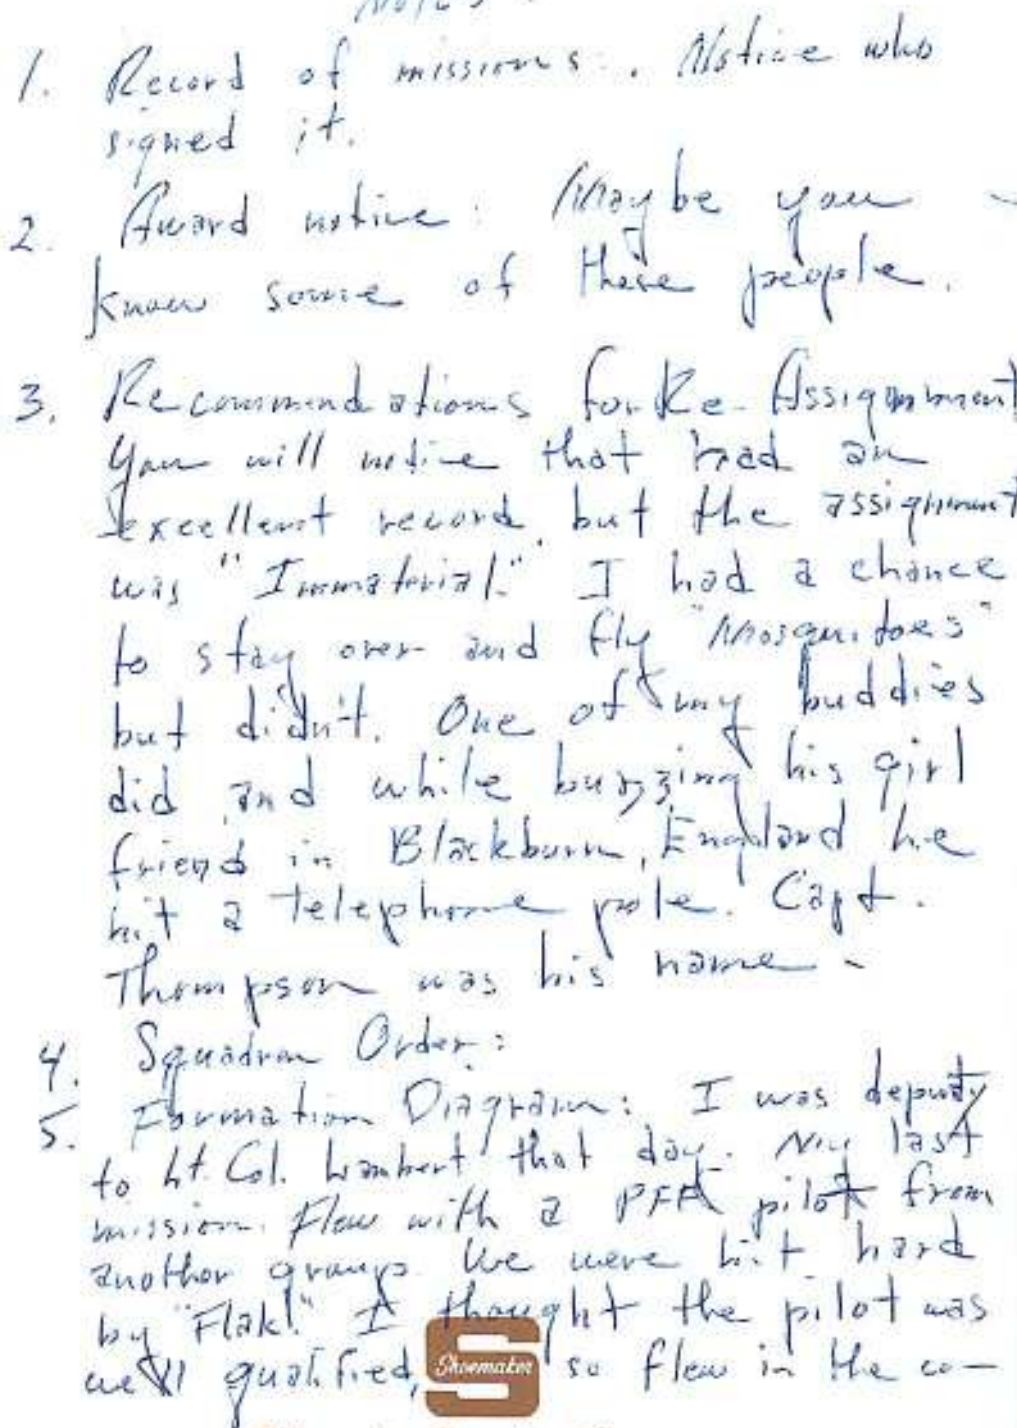 Notes
1. Record of missions. Notice who
signed it.
2. Award notice: Maybe you
know some of these people.
3. Recommendations for Re-Assignment
You will notice that had an
excellent record, but the assignment
was "Immaterial." I had a chance
to stay over and fly "Mosquitoes"
but didn't. One of my buddies
did and while buzzing his girl
friend in Blackburn, England he
hit a telephone pole. Capt.
Thompson was his name -
4. Squadron Order:
5. Formation Diagram: I was deputy
to Lt. Col. Lambert that day. My last
mission. Flew with a PFF pilot from
another group. We were hit hard
by "Flak." I thought the pilot was
well qualified, so flew in the co-
Shoemaker